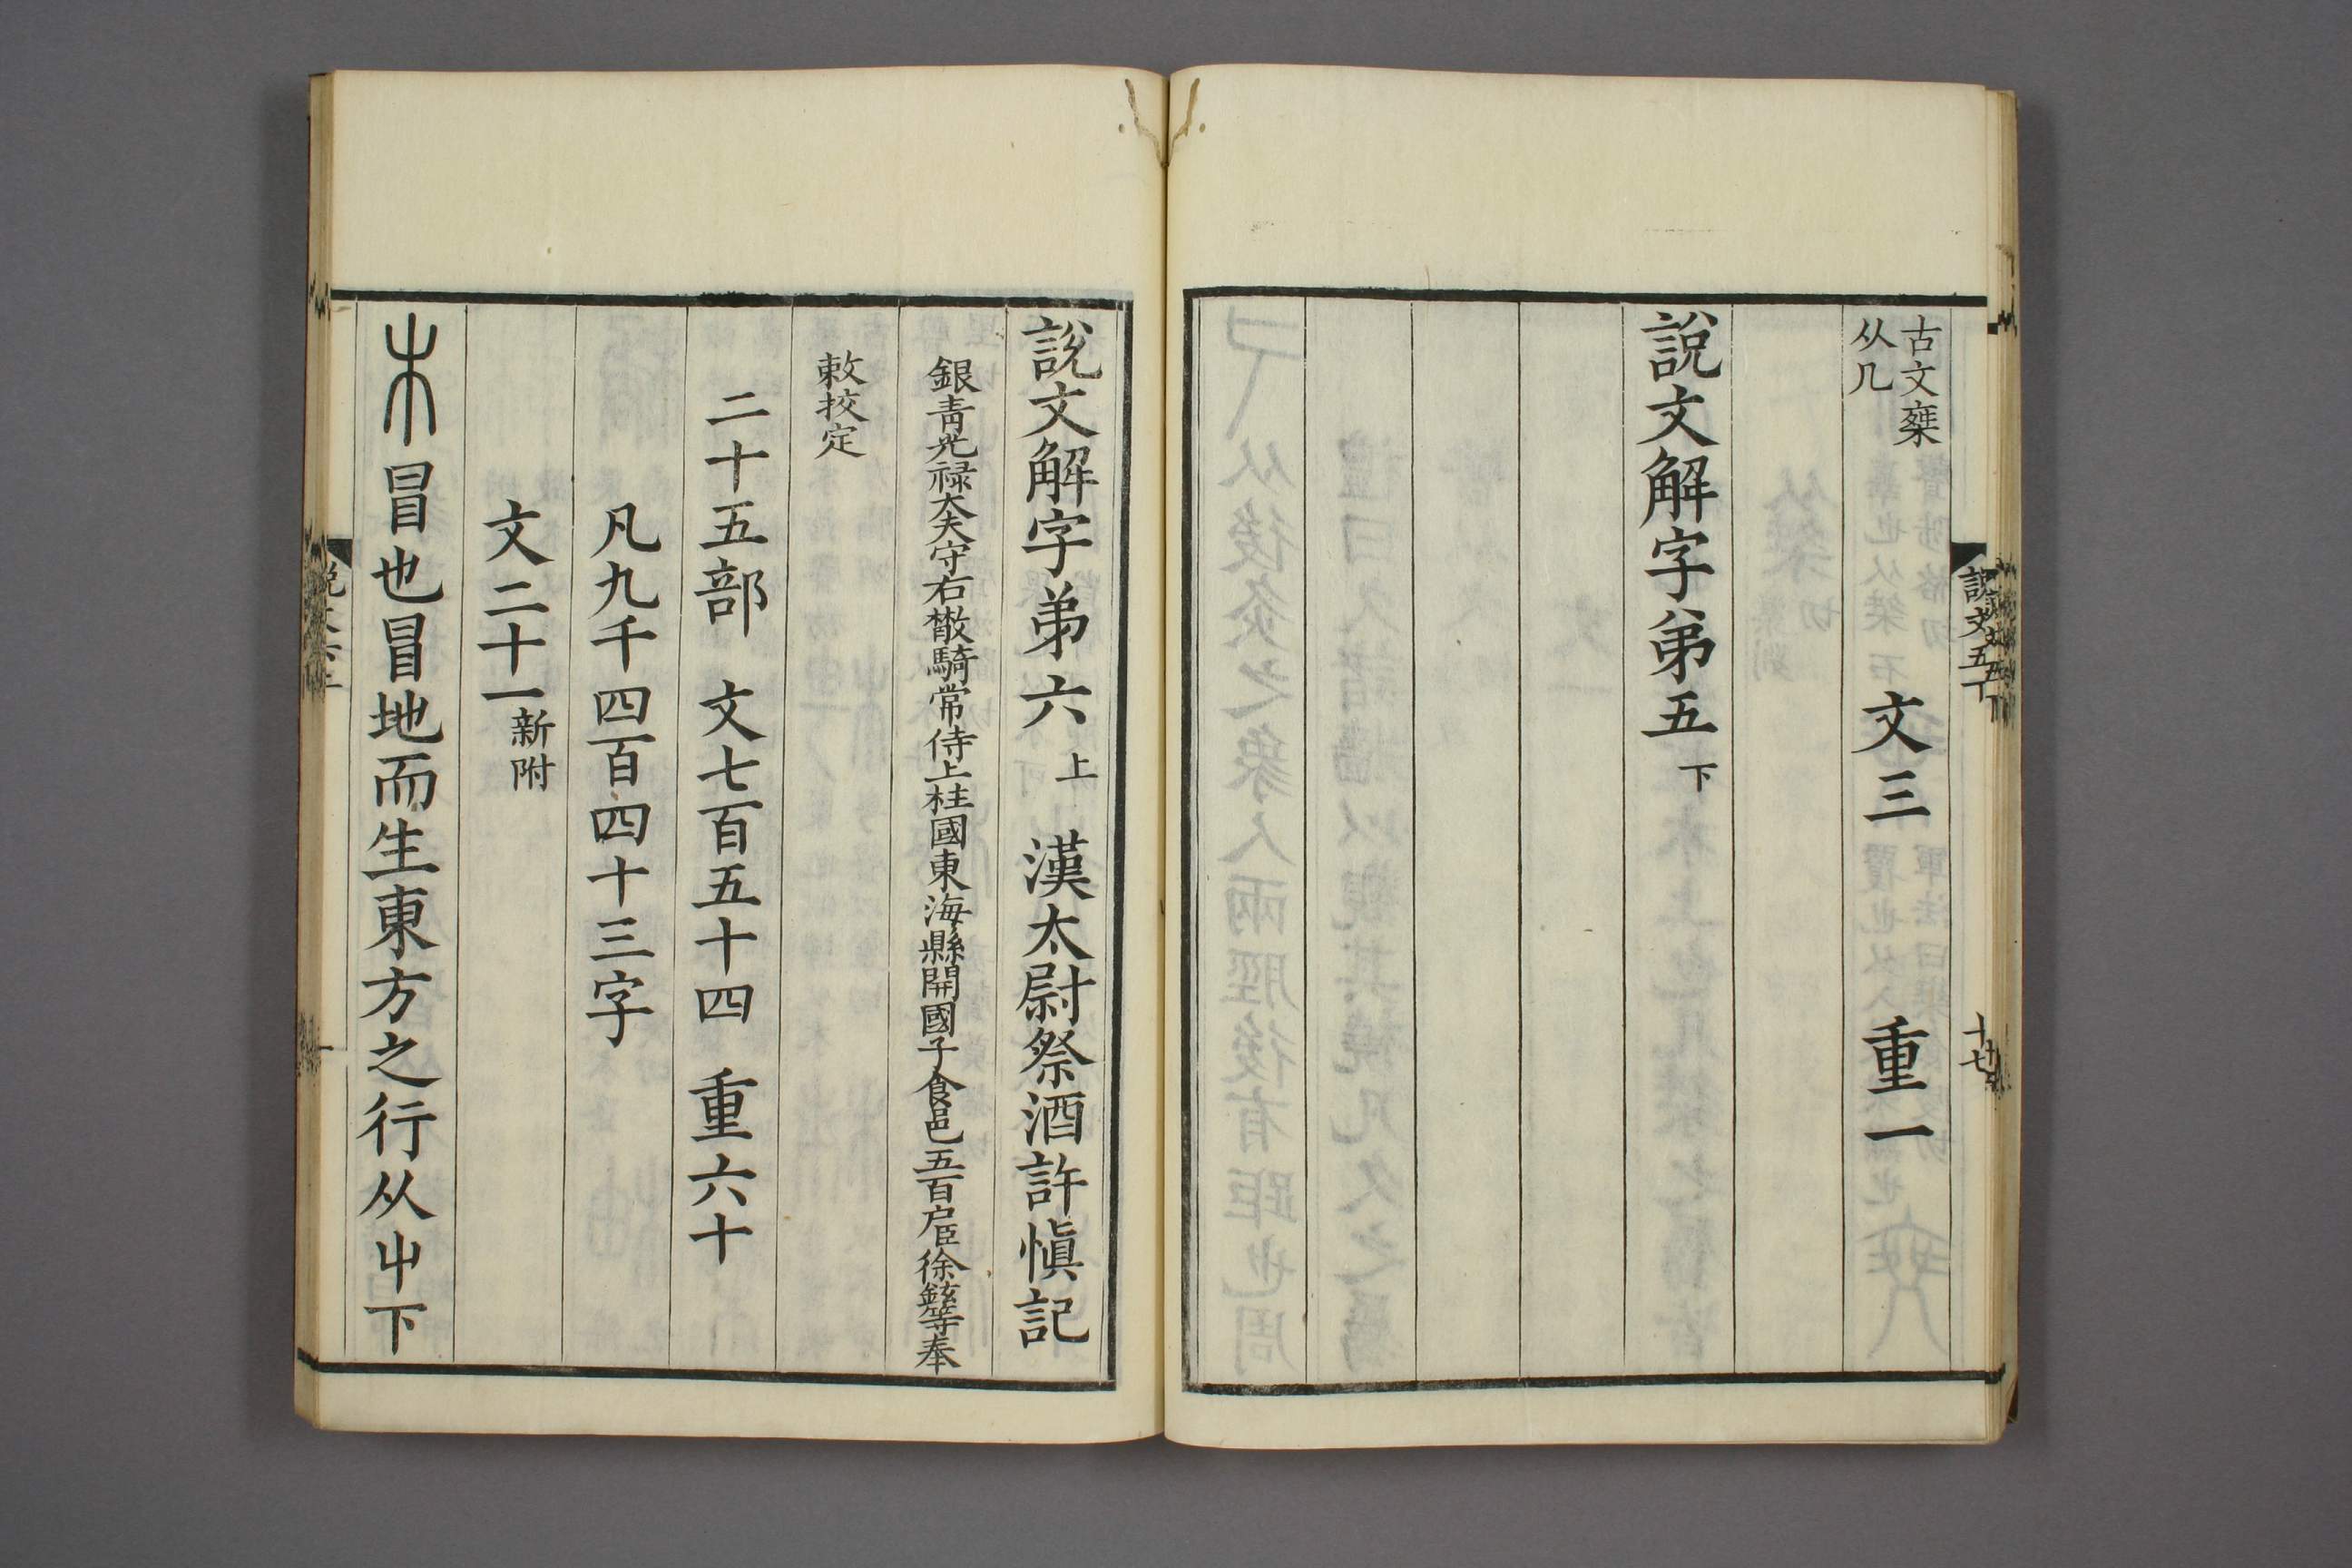 古文椉
从几
文三 重一
說文解字弟五 下
說文五下
十七
說文解字弟六 上 漢太尉祭酒許愼記
銀青光禄大夫守右散騎常侍上柱國東海縣開國子食邑五百户臣徐鉉等奉
敕挍定
二十五部 文七百五十四 重六十
凡九千四百四十三字
文二十一新附
木 冒也冒地而生東方之行从屮下